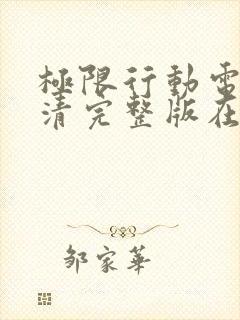 極限行動電
清完整版在
邹家華